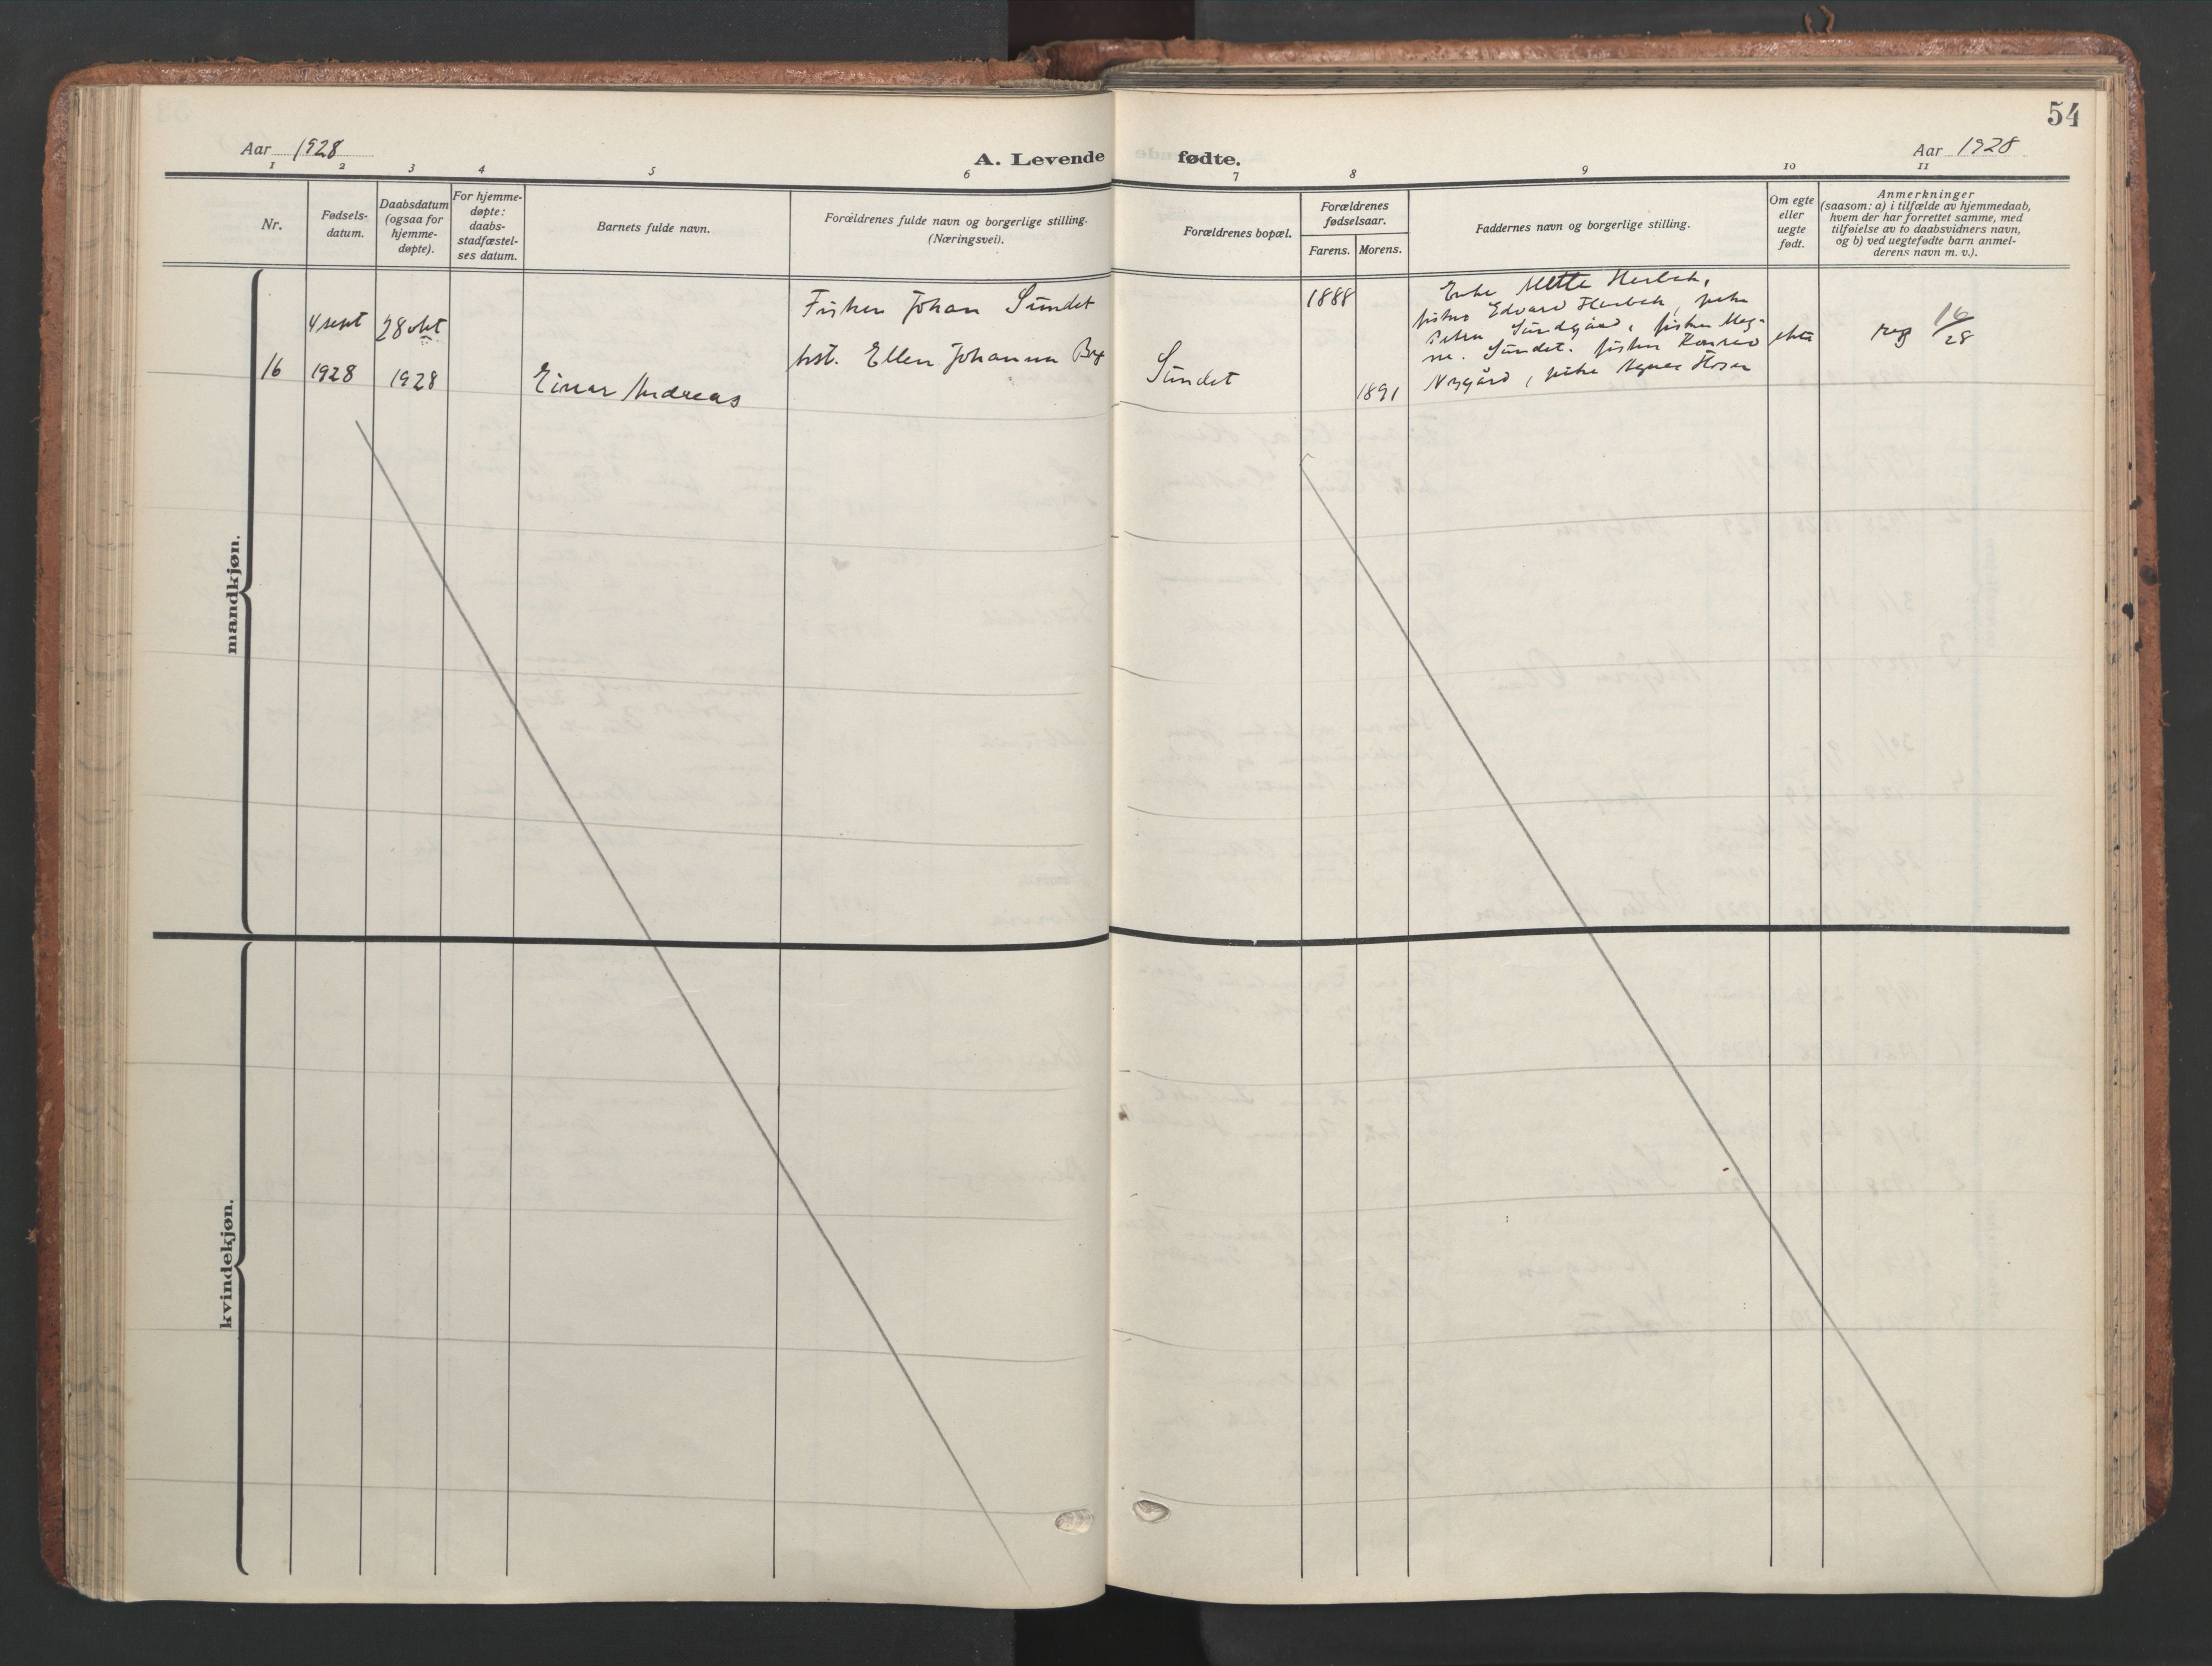 54
Aar 1928
A. Levende fødte.
Aar 1928
1 2 3 4 5 6 7 8 9 10 11
Nr.
Fødsels-
datum.
Daabsdatum
(ogsaa for
hjemme-
døpte).
For hjemme-
døpte:
daabs-
stadfæstel-
ses datum.
Barnets fulde navn.
Forældrenes fulde navn og borgerlige stilling.
(Næringsvei).
Forældrenes bopæl.
Forældrenes
fødselsaar.
Farens. Morens.
Faddernes navn og borgerlige stilling.
Om egte
eller
uegte
født.
Anmerkninger
(saasom: a) i tilfælde av hjemmedaab,
hvem der har forrettet samme, med
tilføielse av to daabsvidners navn,
og b) ved uegtefødte barn anmel-
derens navn m. v.).
mandkjøn.
16
4 sept
1928
28 okt
1928
Einar Andreas
Fisker Johan Sundet
hst. Ellen Johanna
Sundet
1888
1891
Enke Mette
fisker Edvard pike
Petra fisker Mag-
ne. Sundet. fisker Konrad
Nygård, pike Agnes
ekte
reg 16/28
kvindekjøn.